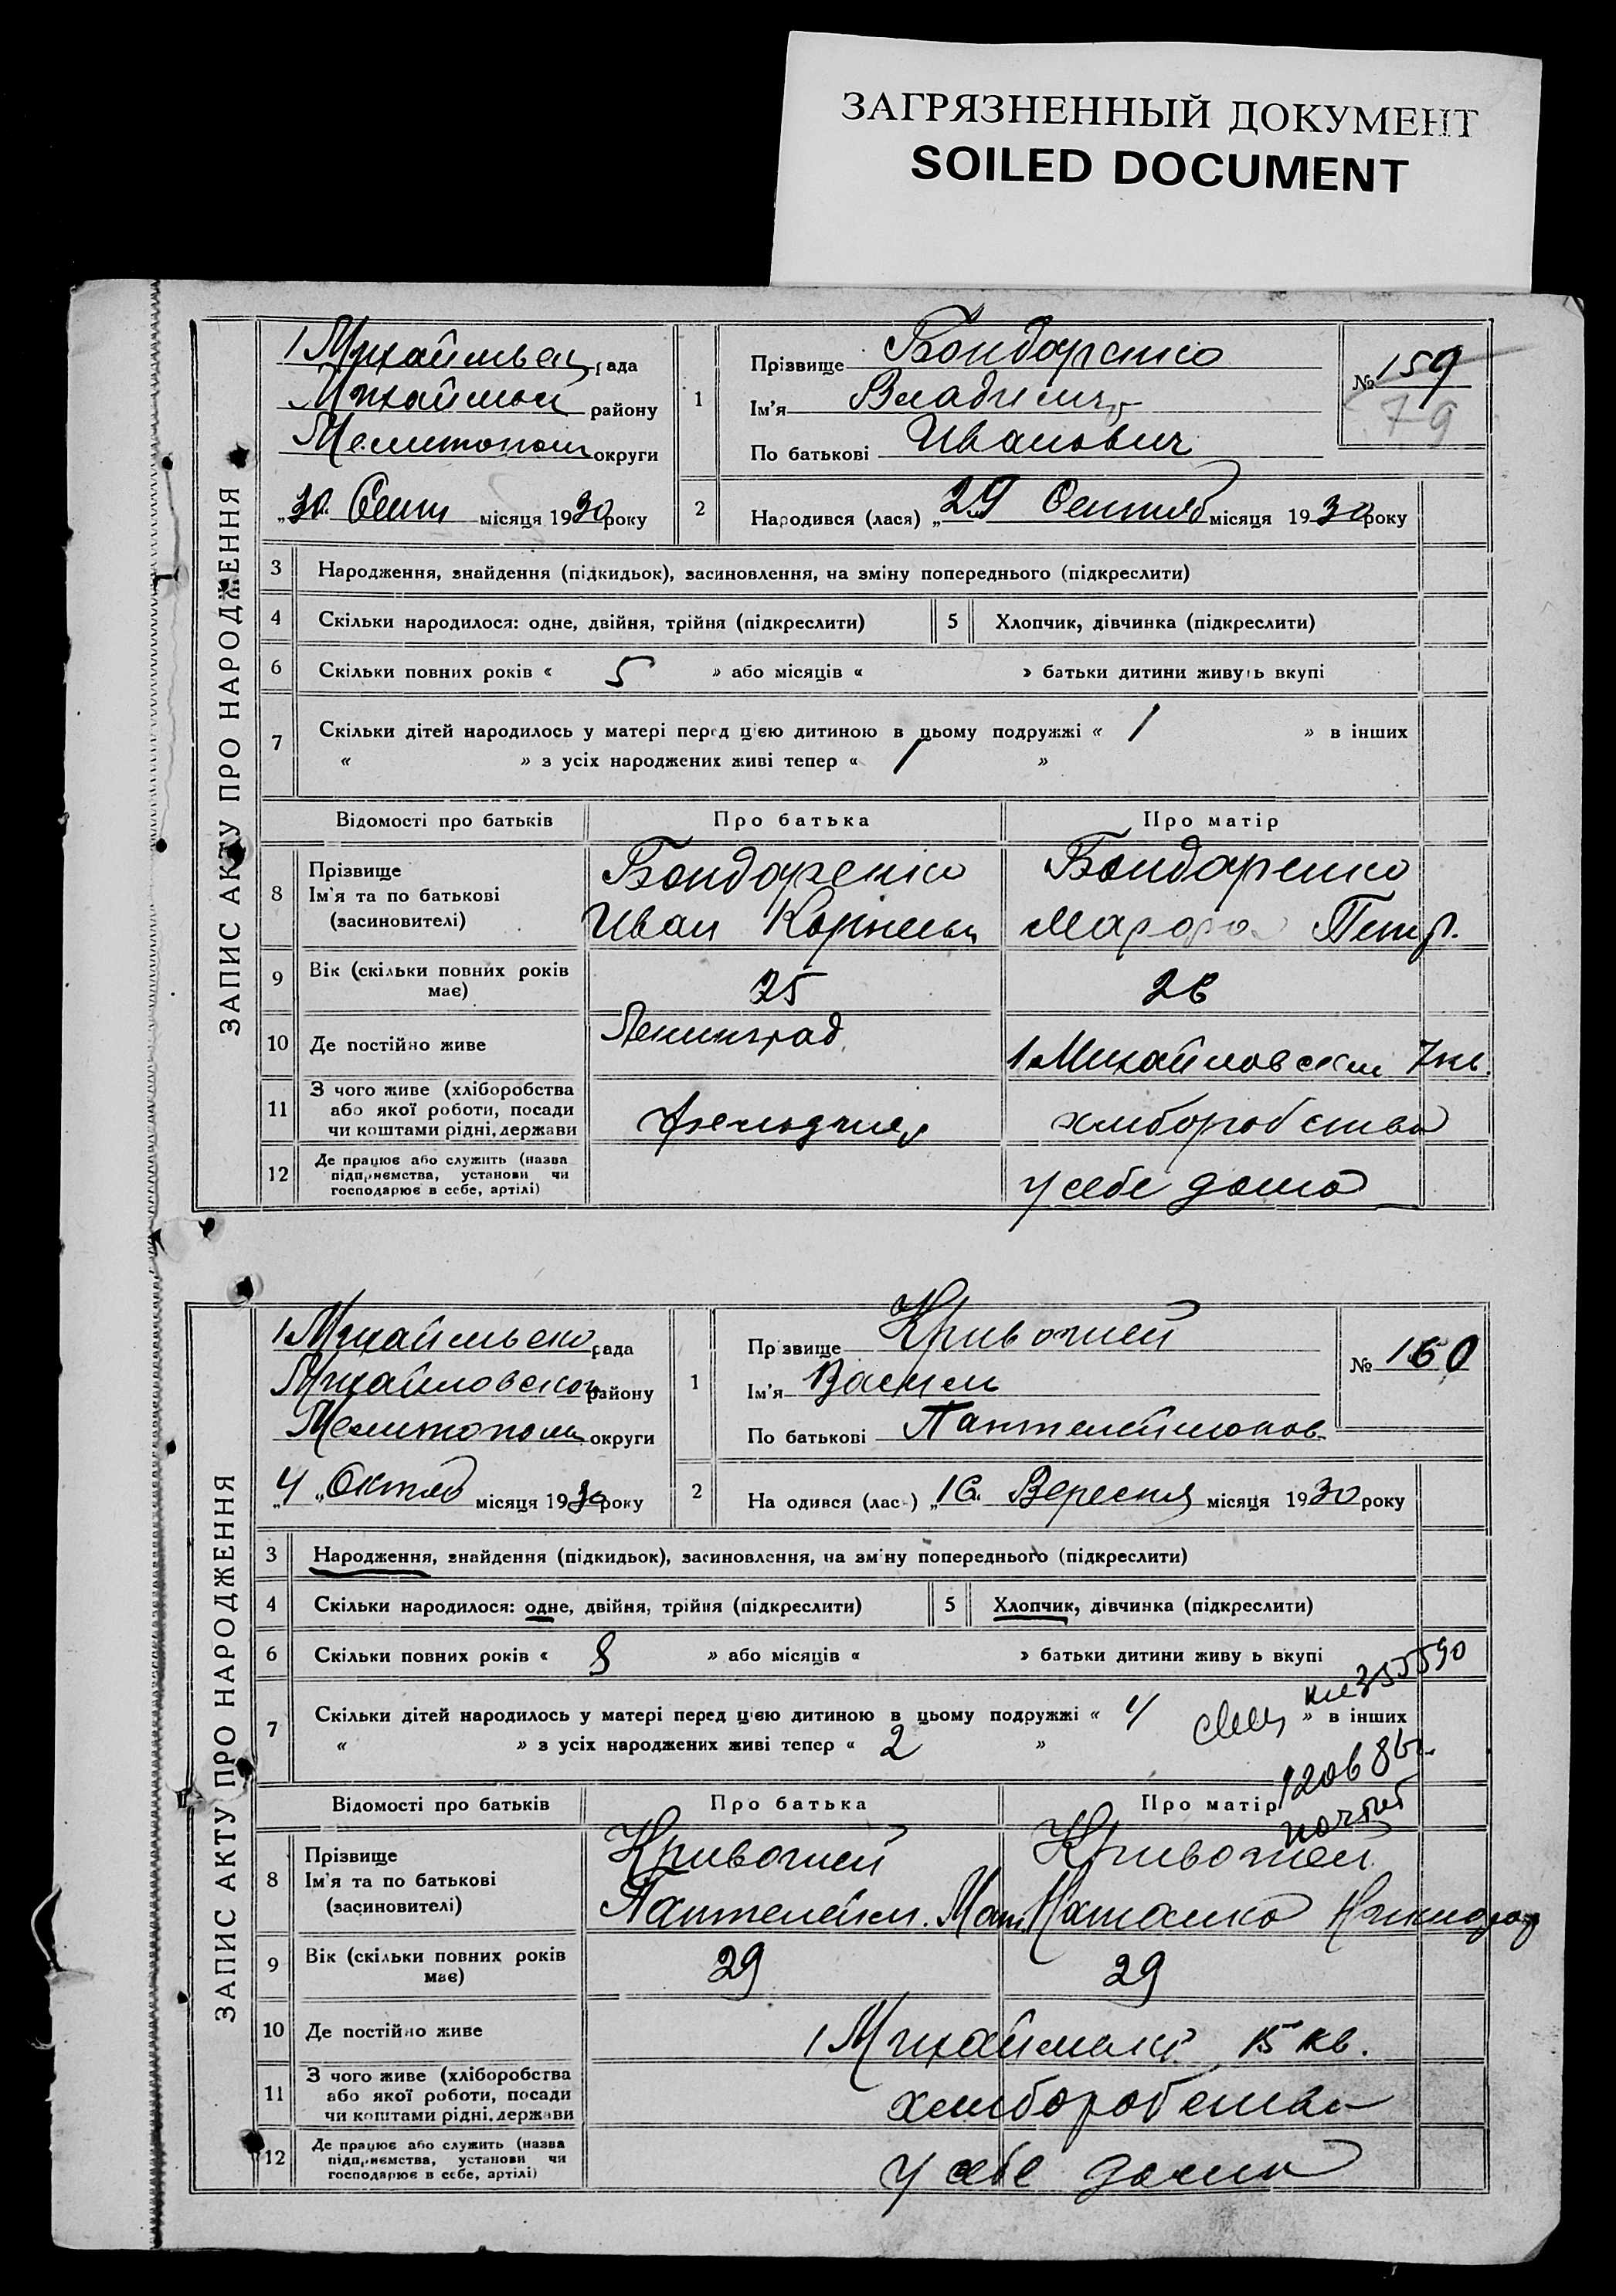 ЗАГРЯЗНЕННЫЙ ДОКУМЕНТ
SOILED DOCUMENT
ЗАПИС АКТУ ПРО НАРОДЖЕННЯ
рада
району
Мелитопол округи
„30. Сент місяця 1930 року
1
Прізвище Бондаренко
Ім'я Владимир
По батькові Иванович
№ 159
79
2
Народився (лася) „29 Сентяб місяця 1930 року
3 Народження, знайдення (підкидьок), засиновлення, на зміну попереднього (підкреслити)
4 Скільки народилося: одне, двійня, трійня (підкреслити) 5 Хлопчик, дівчинка (підкреслити)
6 Скільки повних років « 5 » або місяців « » батьки дитини живуть вкупі
7 Скільки дітей народилось у матері перед цією дитиною в цьому подружжі « 1 » в інших
« » з усіх народжених живі тепер « 1 »
Відомості про батьків Про батька Про матір
8 Прізвище Бондаренко Бондаренко
Ім'я та по батькові Иван Петр.
(засиновителі)
9 Вік (скільки повних років має) 25 26
10 Де постійно живе Ленинград 1 Михайловский 7 кв.
11 З чого живе (хліборобства
або якої роботи, посади
чи коштами рідні, держави хліборобства
12 Де працює або служить (назва
підприємства, установи чи
господарює в себе, артілі) у себе дома
ЗАПИС АКТУ ПРО НАРОДЖЕННЯ
рада
Михайловской району
Мелитопол округи
„4„ Октяб місяця 1930 року
1
Прізвище Кривошей
Ім'я Василь
По батькові Пантелеймонов
№ 160
2
Народився (лась) „16. Вересня місяця 1930 року
3 Народження, знайдення (підкидьок), засиновлення, на зміну попереднього (підкреслити)
4 Скільки народилося: одне, двійня, трійня (підкреслити) 5 Хлопчик, дівчинка (підкреслити)
6 Скільки повних років « 8 » або місяців « » батьки дитини живуть вкупі
355590
7 Скільки дітей народилось у матері перед цією дитиною в цьому подружжі « 4 » в інших
« » з усіх народжених живі тепер « 2 »
Відомості про батьків Про батька Про матір
8 Прізвище Кривошей Кривошей
Ім'я та по батькові Пантелейм.
(засиновителі)
9 Вік (скільки повних років має) 29 29
10 Де постійно живе 15 кв.
11 З чого живе (хліборобства
або якої роботи, посади
чи коштами рідні, держави хліборобства
12 Де працює або служить (назва
підприємства, установи чи
господарює в себе, артілі) у себе дома